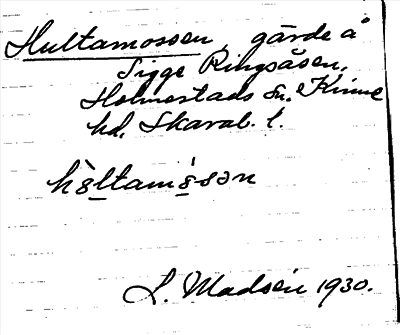 Hultamossen, gärde å
Sigge Ringsåsen,
Holmestads sn. Kinne
hd, Skarab. l.
L. Madsén 1930.